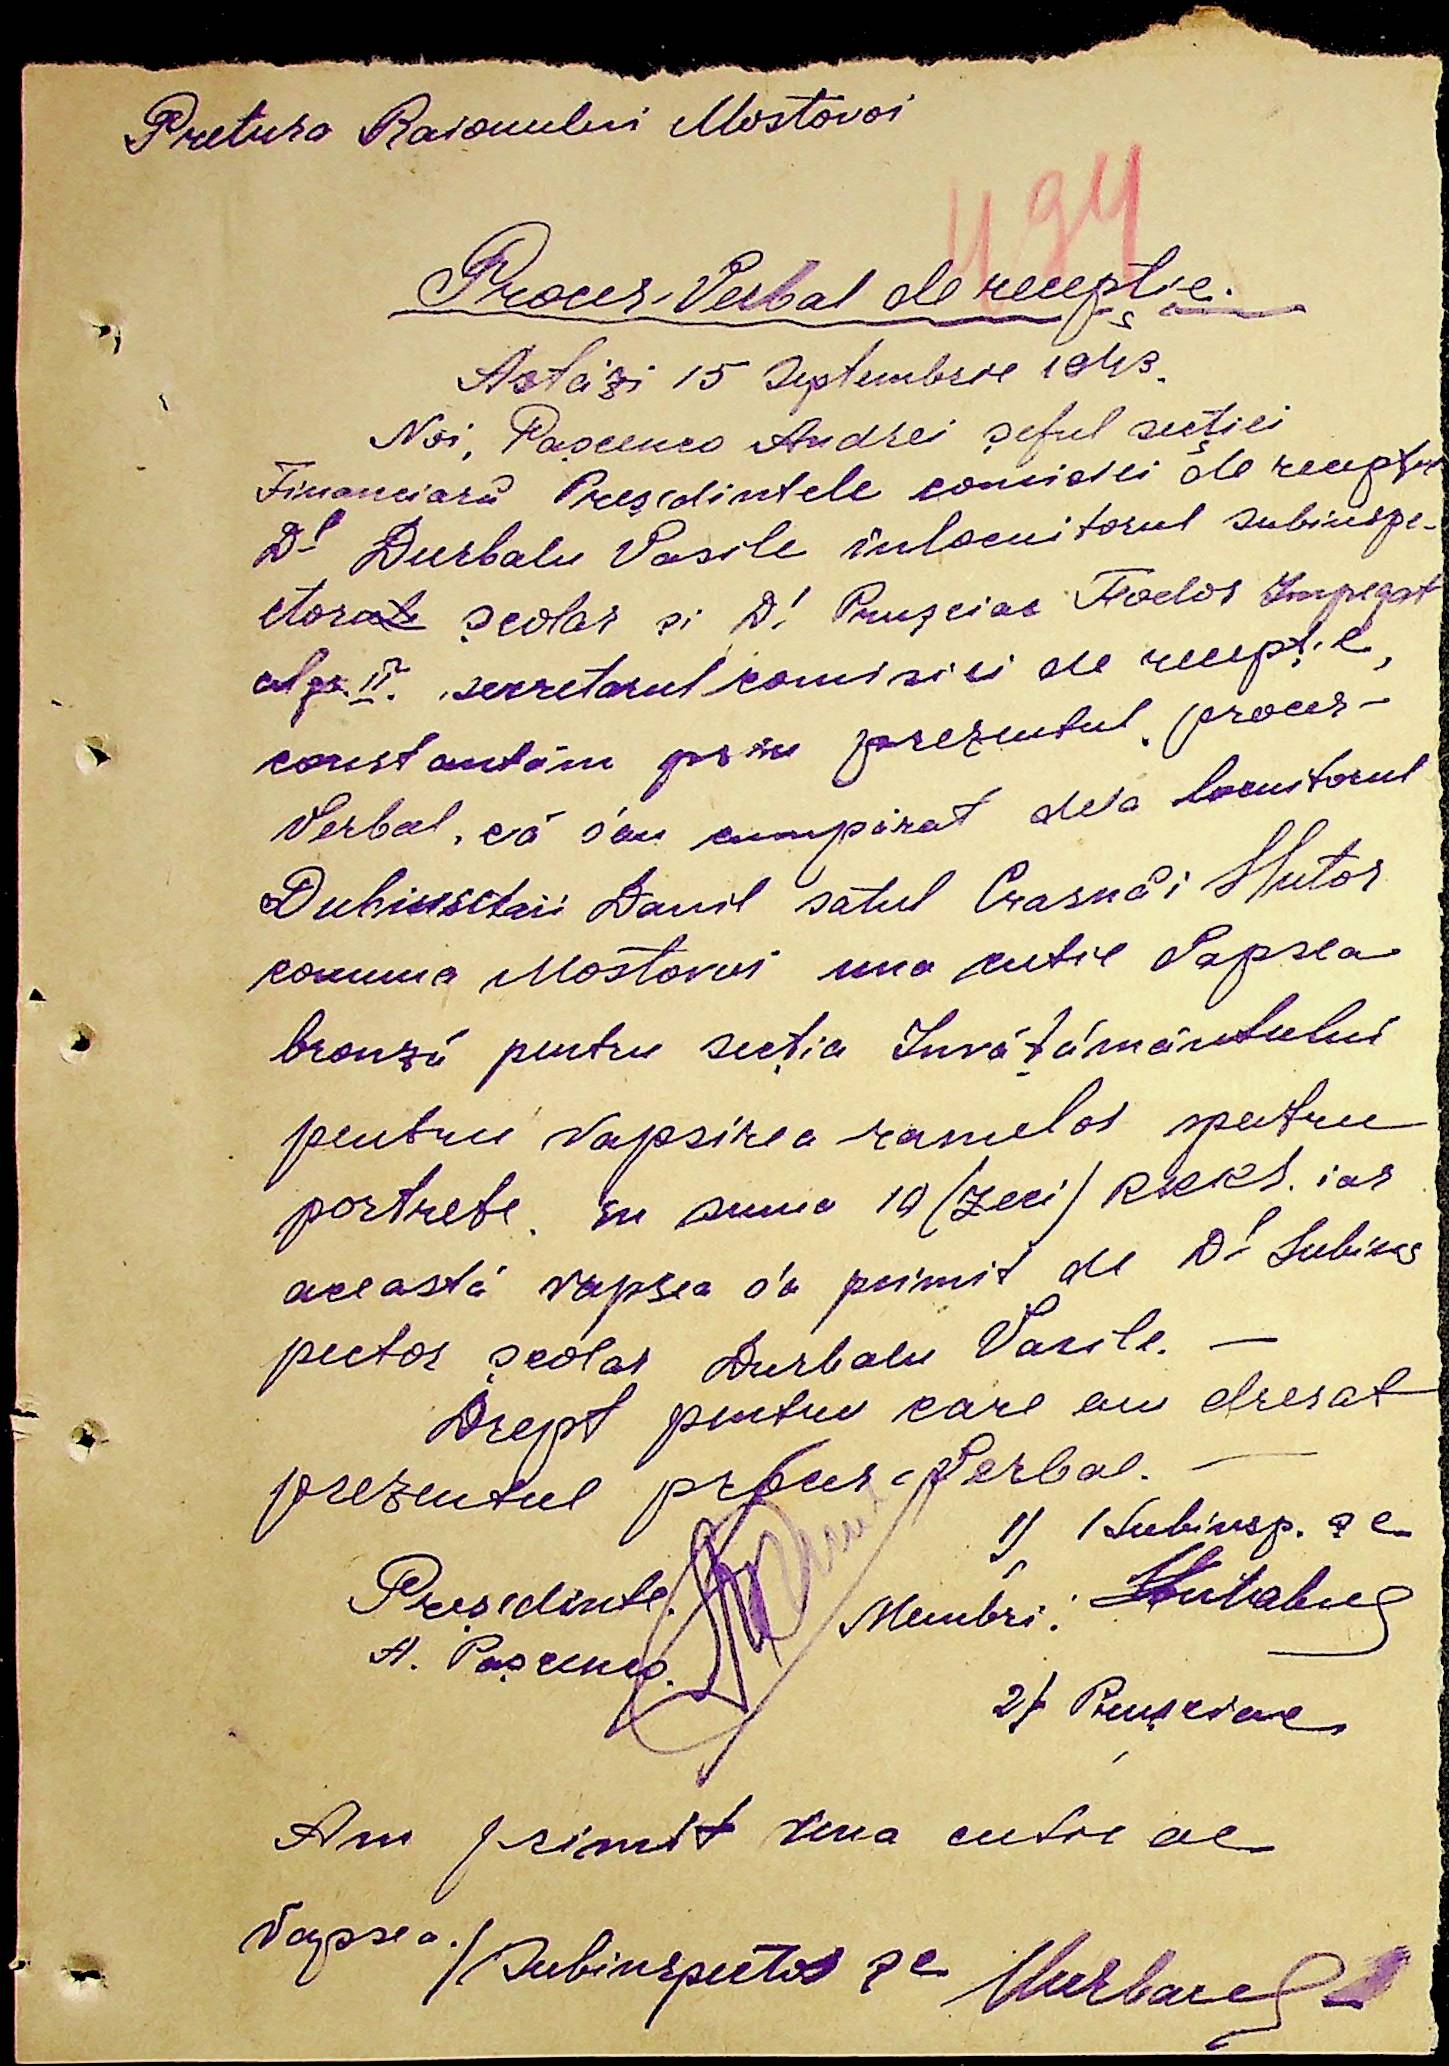 Pretura Raionului Mostovoi
494
Proces-Verbal de recepție.
Astăzi 15 Septembrie 1943.
Noi, Pașcenco Andrei șeful secției
Financiară Preșidintele comisiei de recepție
Dl Durbalu Vasile înlocuitorul subinspe-
ctorat școlar și Dl Prușciac Fiodor Impegat
al gr. II. secretarul comisiei de recepție,
constantăm prin prezentul, proces-
Verbal, că s'au cumpărat dela locuitorul
Danil satul Crasnâi Hutor
comuna Mostovoi una cutie Vapsea
bronză pentru secția Învățământului
pentru vapsirea ramelor pentru
portrete. în suma 10 (Zeci) RKKS. iar
această vapsea s'a primit de Dl Subins
pector școlar Durbalu Vasile. —
Drept pentru care am dresat
prezentul proces-Verbal. —
1) / Subinsp. șc
Preșidinte.
Membri:
A. Pașcenco.
2) Prușciac
Am primit una cutie de
Vapsea. / Subinspector șc